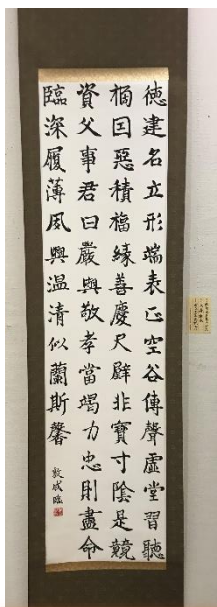 徳建名立形端表正空谷傳聲虚堂習聽
禍因惡積福縁善慶尺璧非寶寸陰是競
資父事君曰嚴與敬孝當竭力忠則盡命
臨深履薄夙興温凊似蘭斯馨
敦成臨